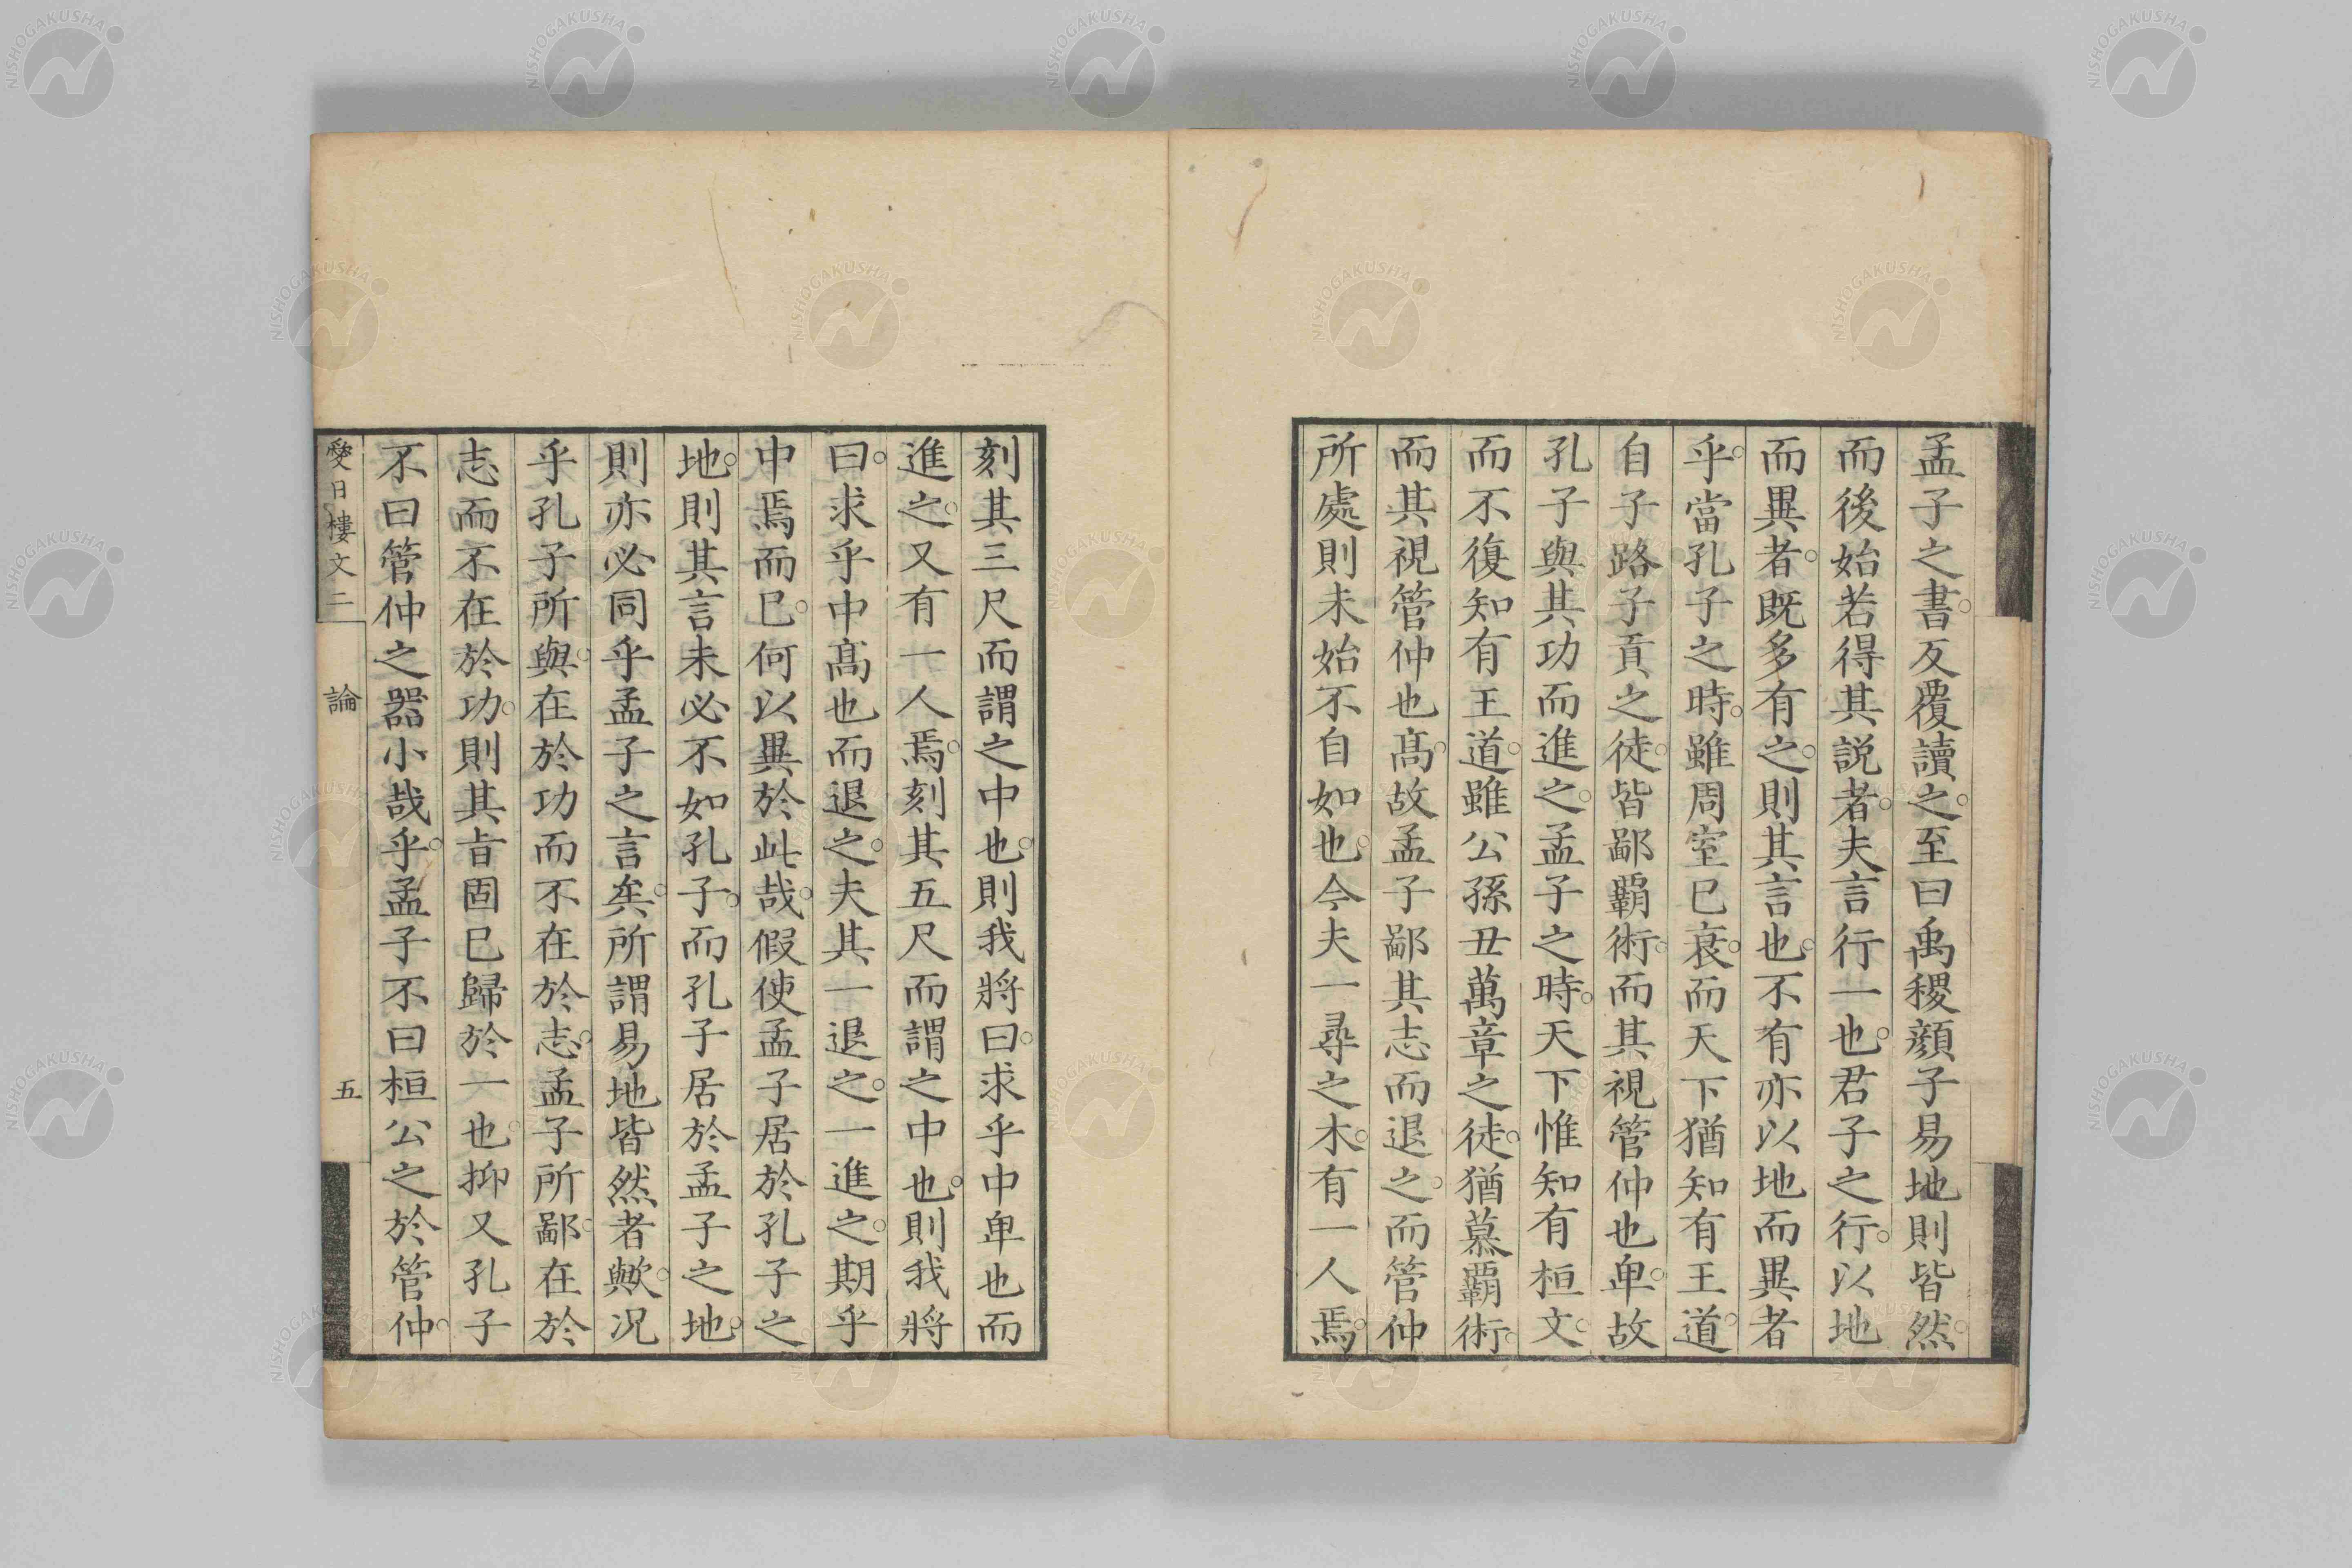 孟子之書。反覆讀之。至曰禹稷顏子易地則皆然。
而後始若得其説者。夫言行一也。君子之行。以地
而異者。既多有之。則其言也。不有亦以地而異者
乎。當孔子之時。雖周室已衰。而天下猶知有王道。
自子路子貢之徒。皆鄙覇術。而其視管仲也卑。故
孔子與其功而進之。孟子之時。天下惟知有桓文。
而不復知有王道。雖公孫丑萬章之徒。猶慕覇術。
而其視管仲也髙。故孟子鄙其志而退之。而管仲
所處則未始不自如也。今夫一尋之木。有一人焉。
刻其三尺而謂之中也。則我將曰。求乎中卑也而
進之。又有一人焉。刻其五尺而謂之中也。則我將
曰。求乎中髙也而退之。夫其一退之。一進之。期乎
中焉而已。何以異於此哉。假使孟子居於孔子之
地。則其言未必不如孔子。而孔子居於孟子之地。
則亦必同乎孟子之言矣。所謂易地皆然者歟。况
乎孔子所與。在於功而不在於志。孟子所鄙。在於
志而不在於功。則其旨固已歸於一也。抑又孔子
不曰管仲之器小哉乎。孟子不曰桓公之於管仲。
愛日樓文二
論
五
NISHOGAKUSHA